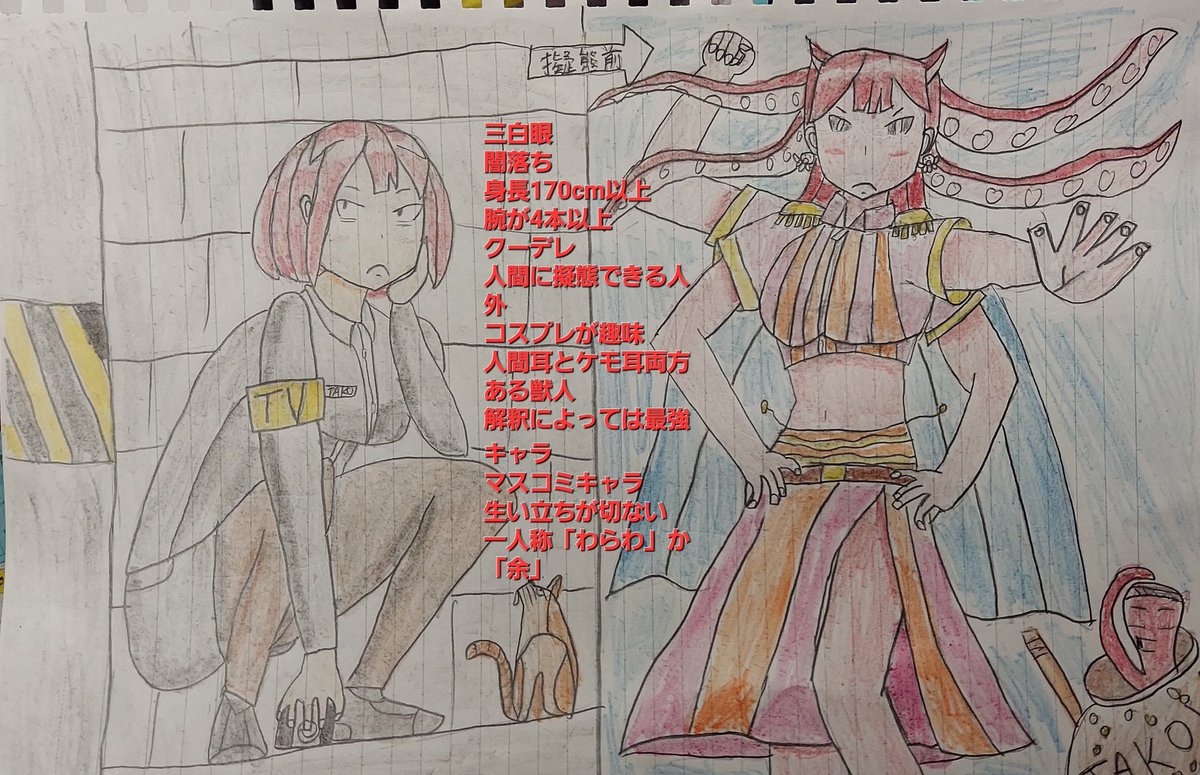 擬態前
三白眼
闇落ち
身長170cm以上
腕が4本以上
クーデレ
人間に擬態できる人
外
コスプレが趣味
人間耳とケモ耳両方
ある獣人
解釈によっては最強
キャラ
マスコミキャラ
生い立ちが切ない
一人称「わらわ」か
「余」
TV
TAKO
TAKO